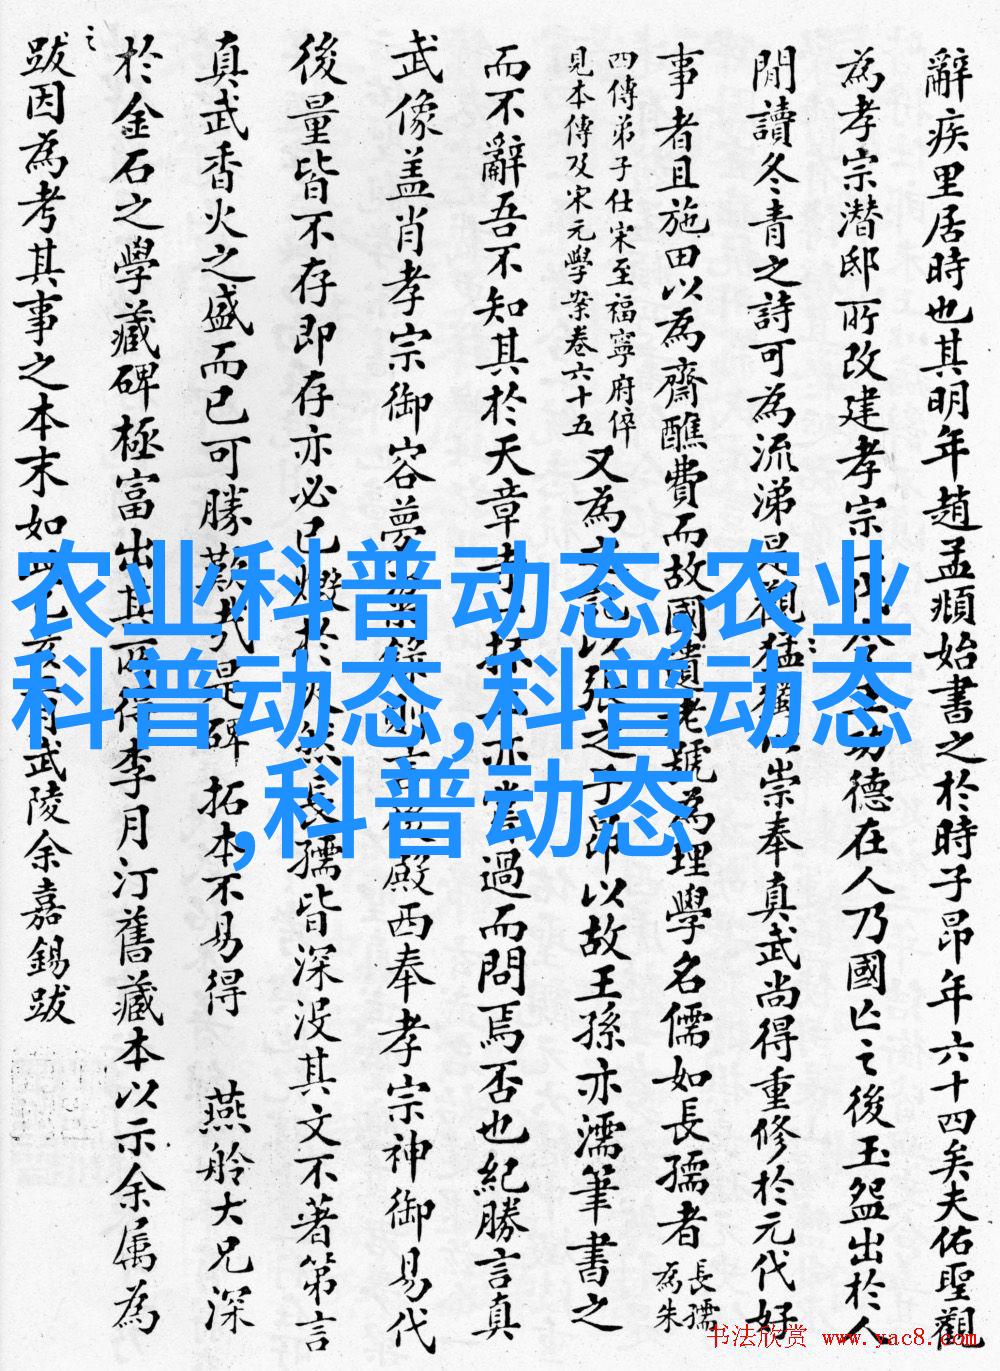 辭疾里居時也其明年趙孟頫始書之於時子昂年六十四矣夫佑聖觀
為孝宗潛邸所改建孝宗一功德在人乃國亡之後玉盌出於人
閒讀冬青之詩可為流涕是觀猶崇奉真武尚得重修於元代好
事者且施田以為齋醮費而故國遺老號為理學名儒如長孺者
長孺
為朱
四傳弟子仕宋至福寧府倅
見本傳及宋元學案卷六十五
又為記以張之子昂以故王孫亦濡筆書之
而不辭吾不知其於天章寺亦嘗過而問焉否也紀勝言真
武像蓋肖孝宗御容夢殿西奉孝宗神御易代
後量皆不存即存亦必已燬於長孺皆深沒其文不著第言
真武香火之盛而已可勝歎哉是碑拓本不易得 燕舲大兄深
於金石之學藏碑極富出其所得李月汀舊藏本以示余屬為
跋因為考其事之本末如月武陵余嘉錫跋
之
农业科普动态,农业
科普动态,科普动态
,科普动态
书法欣赏 www.yac8.com